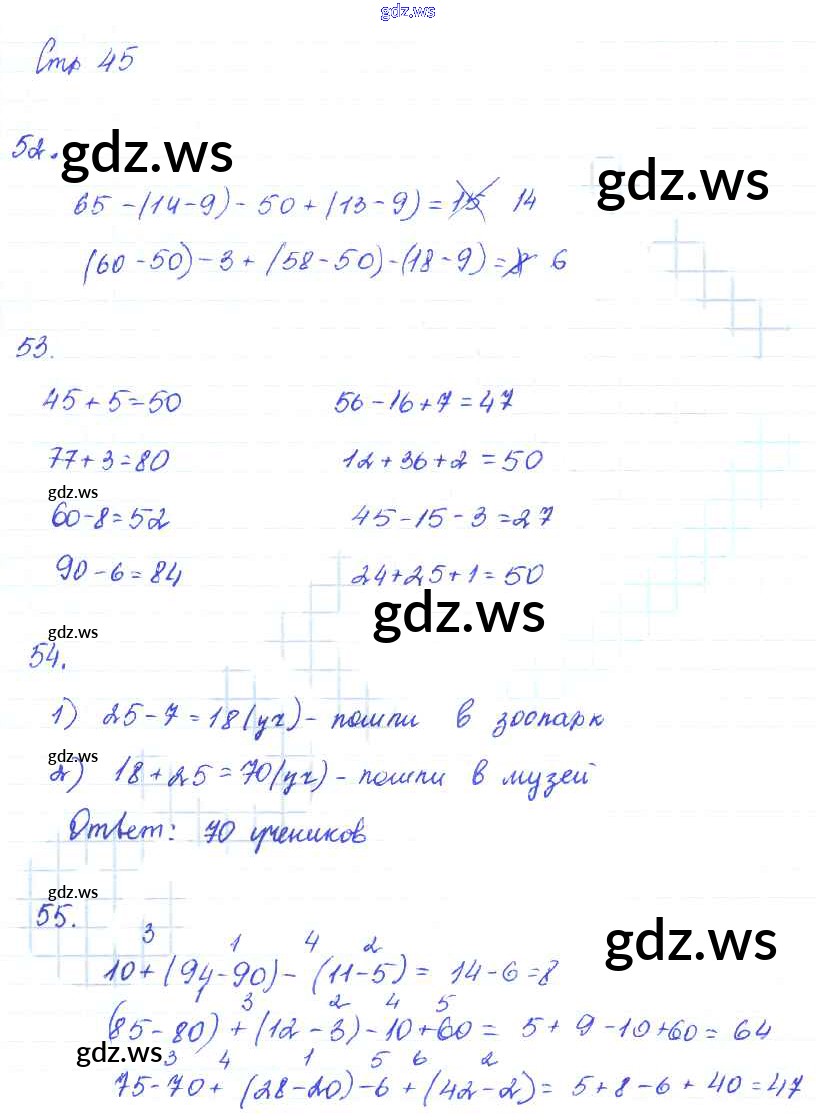 gdz.ws
Стр 45
52.
gdz.ws
gdz.ws
65-(14-9)-50+(13-9)=15 14
(60-50)-3+(58-50)-(18-9)=8 6
53.
45+5=50 56-16+7=47
77+3=80 12+36+2=50
gdz.ws
60-8=52 45-15-3=27
90-6=84 24+25+1=50
gdz.ws
gdz.ws
54.
1) 25-7=18(уч)-пошли в зоопарк
gdz.ws
2) 18+25=70(уч)-пошли в музей
Ответ: 70 учеников
gdz.ws
55.
gdz.ws
3 1 4 2
10+(94-90)-(11-5)= 14-6=8
1 3 2 4 5
(85-80)+(12-3)-10+60= 5+9-10+60=64
gdz.ws
3 4 1 5 6 2
75-70+(28-20)-6+(42-2)= 5+8-6+40=47